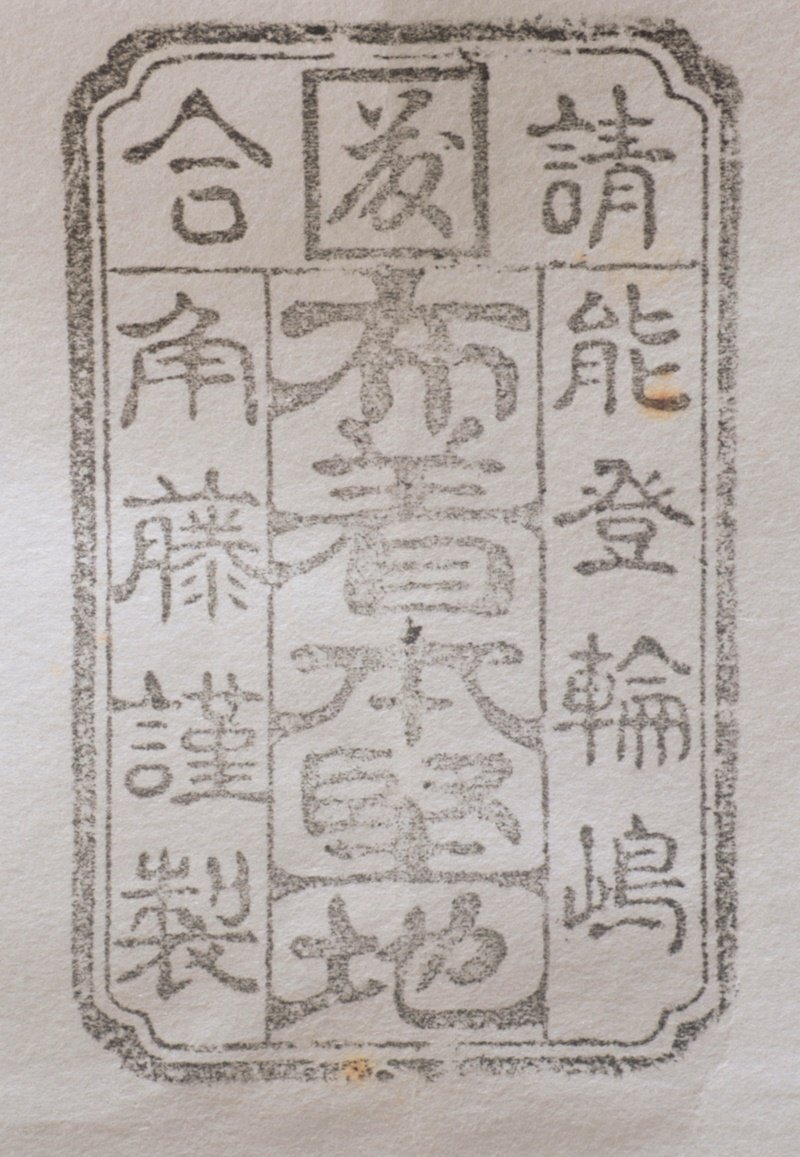 請合
能登輪嶋
布着本堅地
角藤謹製